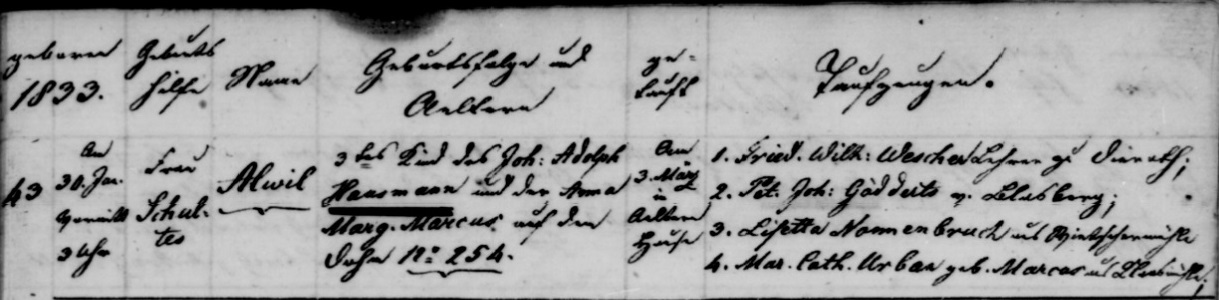 geboren 1833.
Geburts hilfe
Name
Geburtsfolge und Aeltern
ge- tauft
Taufzeugen.
43
Am 30. Jan. Vormitt 3 Uhr
Frau Schul- tes
Alwil
3tes Kind des Joh: Adolph
Hausmann und der Anna
Marg. Marcus auf der
No 254.
Am 3. März in Aeltern Hause
1. Fried. Wilh: Wescher Lehrer zu
2. Pet. Joh: Gödderts v.
3. Lisetta Nonnenbruch aus
4. Mar. Cath. Urban geb. Marcus